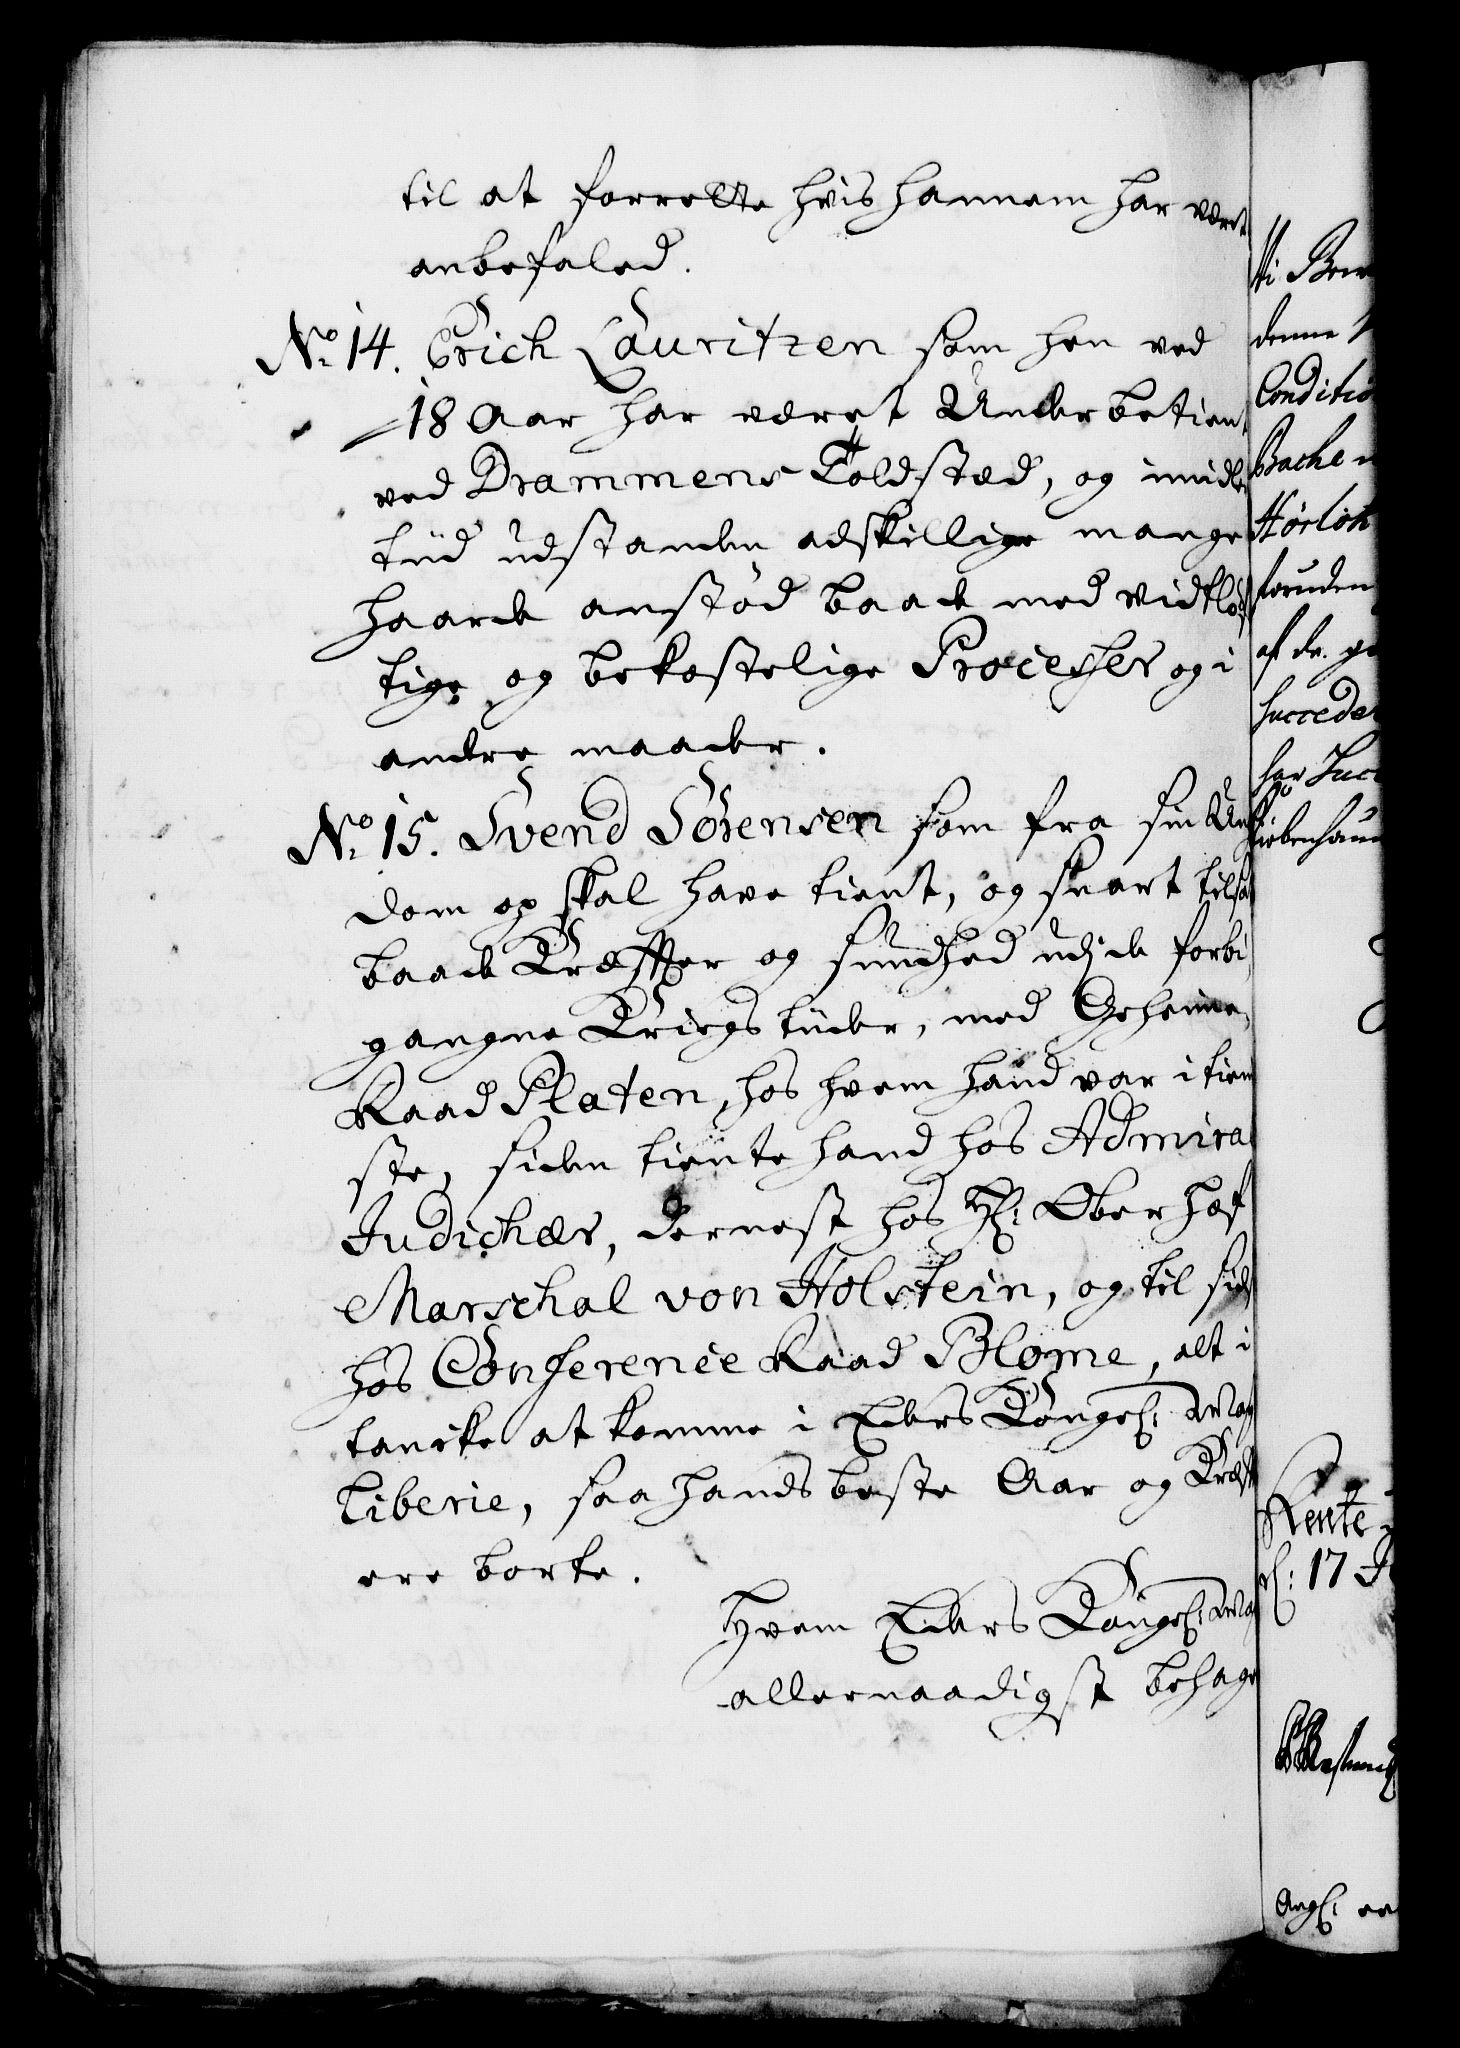 til at forrette hvis hannem har været
anbefaled.
No. 14. Erich Lauritzen som hen ved
18 Aar har været Underbetient
ved Drammens Toldsted, og imidler
tiid udstanden adskillige mange
haarde anstød baade med vidtløf
tige og bekostelige Processer og i
andre maader.
No. 15. Svend Sørensen som fra sin Ung
dom op skal have tient, og svart tilsat
baade Kræffter og sundhed udj de forbi
gangne Kriegs tiider, med Geheime
Raad Platen, hos hvem hand var i tiene
ste, siden tiente hand hos Admiral
Judichær, dernest hos Hr: Ober Hof
Marschal von Holstein, og til sidst
hos Conference Raad Blome, alt i
tancke at komme i Eders Kongel: May
liberie, saa hands beste Aar og Kræfft
ere borte.
Hvem Eders Kongel: May
allernaadigst behage
denne
Conditio
Bache
Hørlok
foruden
af de
succeder
har Succ
Kiøbenhaun
Rente
d: 17 J